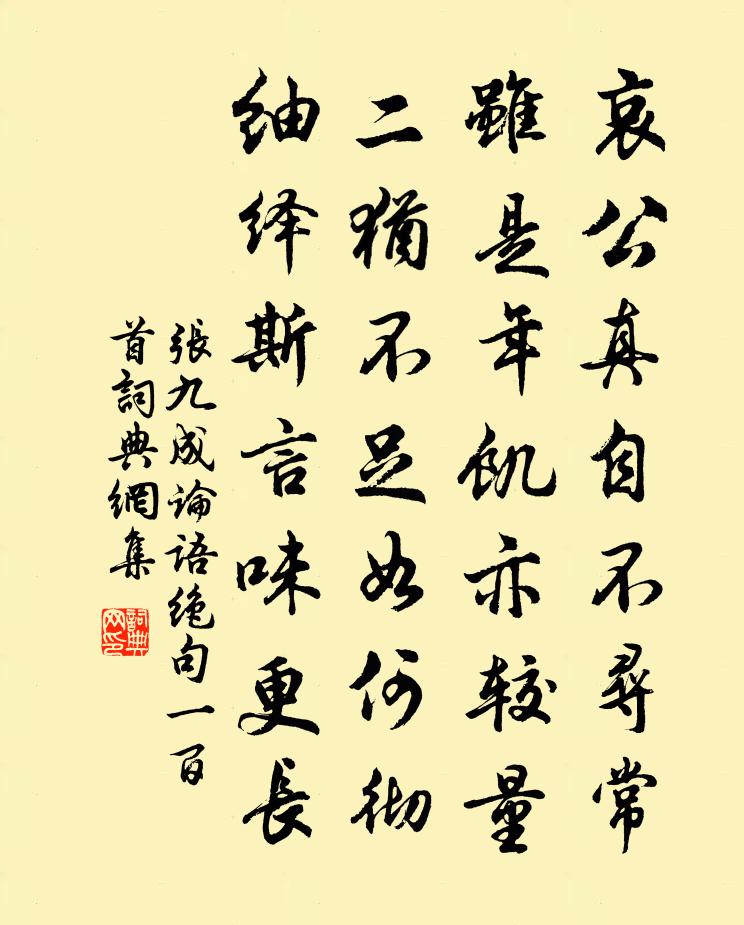 哀公真自不尋常
雖是年飢亦較量
二猶不足如何彻
紬绎斯言味更長
張九成論語绝句一百
首詞典網集
詞典
网印